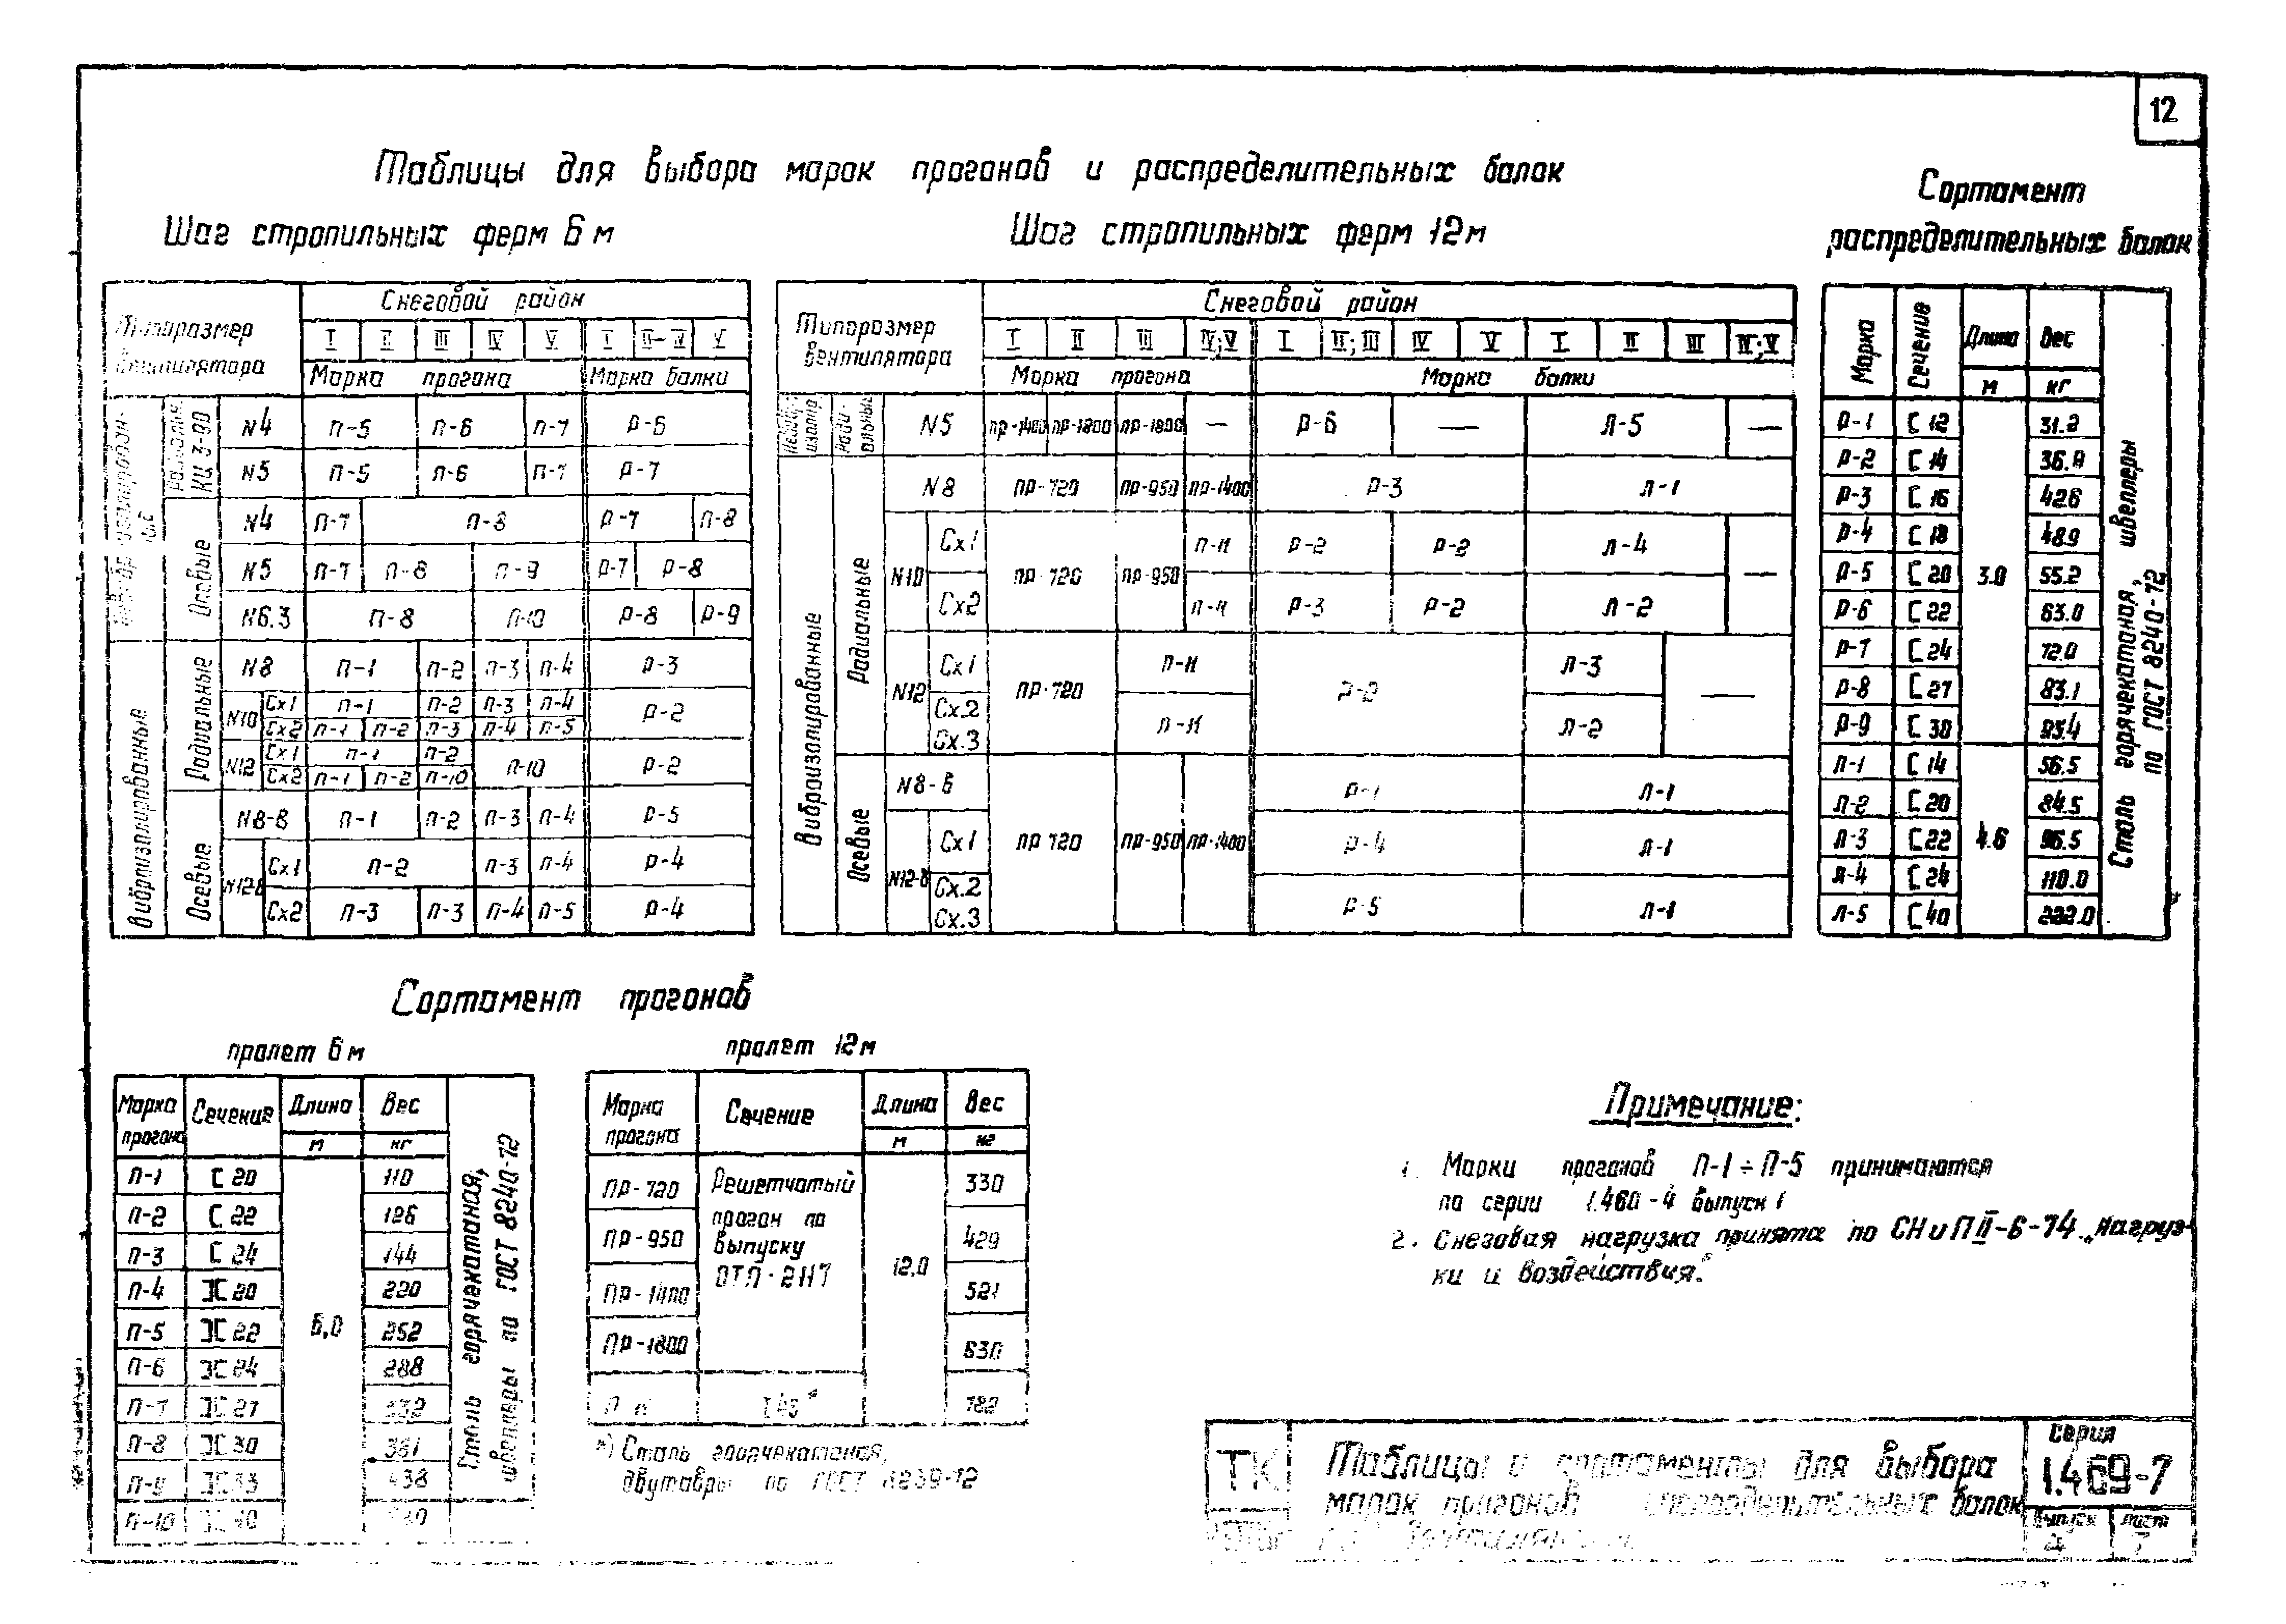 12
Таблицы для выбора марок прогонов и распределительных балок
Шаг стропильных ферм 6 м
Типоразмер вентилятора
Снеговой район
I II III IV V I II-IV V
Марка прогона Марка балки
Радиальн. КЦ 3-90
N4 П-5 П-6 П-7 Р-6
N5 П-5 П-6 П-7 Р-7
Осевые
N4 П-7 П-8 Р-7 П-8
N5 П-7 П-8 П-9 Р-7 Р-8
N6.3 П-8 П-10 Р-8 Р-9
Виброизолированные
Радиальные
N8 П-1 П-2 П-3 П-4 Р-3
N10 Сх1 П-1 П-2 П-3 П-4 Р-2
Сх2 П-1 П-2 П-3 П-4 П-5
N12 Сх1 П-1 П-2 П-10 Р-2
Сх2 П-1 П-2 П-10
Осевые
N8-8 П-1 П-2 П-3 П-4 Р-5
N12-8 Сх1 П-2 П-3 П-4 Р-4
Сх2 П-3 П-3 П-4 П-5 Р-4
Шаг стропильных ферм 12 м
Типоразмер вентилятора
Снеговой район
I II III IV;V I II;III IV V I II III IV;V
Марка прогона Марка балки
Радиальные
N5 ПР-1400 ПР-1800 ПР-1800 — Р-6 — Л-5 —
Виброизолированные
Радиальные
N8 ПР-720 ПР-950 ПР-1400 Р-3 Л-1
N10 Сх1 ПР-720 ПР-950 П-11 Р-2 Р-2 Л-4 —
Сх2 П-11 Р-3 Р-2 Л-2
N12 Сх1 ПР-720 П-11 Р-2 Л-3 —
Сх.2 Сх.3 П-11 Л-2
Осевые
N8-8 Р-1 Л-1
N12-8 Сх1 ПР 720 ПР-950 ПР-1400 Р-4 Л-1
Сх.2 Сх.3 Р-5 Л-1
Сортамент
распределительных балок
Марка Сечение Длина Вес
м кг
Р-1 [ 12 31.2
Р-2 [ 14 36.9
Р-3 [ 16 42.6
Р-4 [ 18 48.9
Р-5 [ 20 3.0 55.2
Р-6 [ 22 63.0
Р-7 [ 24 72.0
Р-8 [ 27 83.1
Р-9 [ 30 95.4
Л-1 [ 14 56.5
Л-2 [ 20 84.5
Л-3 [ 22 4.6 96.5
Л-4 [ 24 110.0
Л-5 [ 40 222.0
Сталь горячекатаная, швеллеры
по ГОСТ 8240-72
Сортамент прогонов
пролет 6 м
Марка прогона Сечение Длина Вес
м кг
П-1 [ 20 110
П-2 [ 22 126
П-3 [ 24 144
П-4 ][ 20 220
П-5 ][ 22 6,0 252
П-6 ][ 24 288
П-7 ][ 27 332
П-8 ][ 30 381
П-9 ][ 33 438
П-10 ][ 40
Сталь горячекатаная,
швеллеры по ГОСТ 8240-72
пролет 12 м
Марка прогона Сечение Длина Вес
м кг
ПР-720 Решетчатый 330
ПР-950 прогон по выпуску 429
ПР-1400 ОТП-2117 12,0 521
ПР-1800 630
П 11 I 45 * 782
*) Сталь горячекатаная,
двутавры по ГОСТ 8239-72
Примечание:
1. Марки прогонов П-1 ÷ П-5 принимаются
по серии 1.460-4 выпуск 1
2. Снеговая нагрузка принята по СНиП II-6-74 „Нагруз-
ки и воздействия."
ТК
Таблицы и сортаменты для выбора
марок прогонов распределительных балок
Серия
1.469-7
Выпуск Лист
7